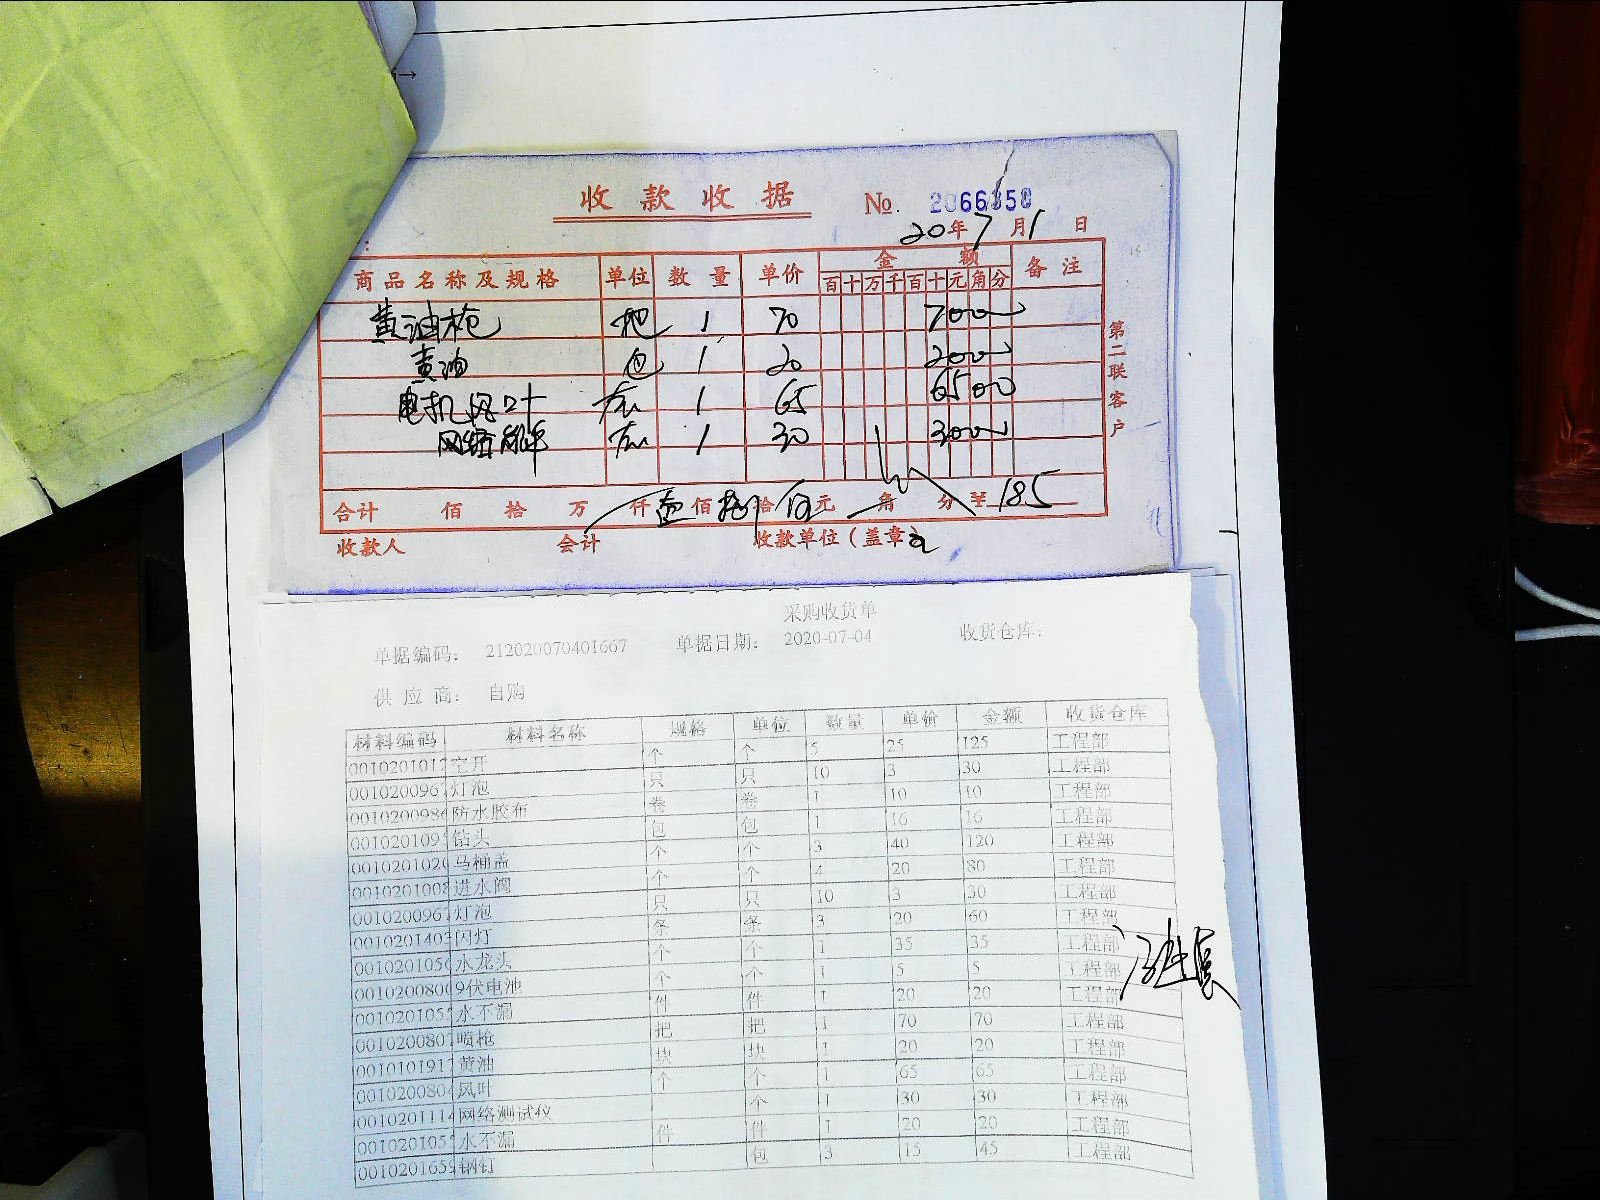 收款收据 №. 2066350
20年7月1日
商品名称及规格 单位 数量 单价 金额 备注
百十万千百十元角分
黄油枪 把 1 70 7000
黄油 包 1 20 2000
电机风叶 1 65 6500
网络 1 30 3000
第二联客户
合计 佰 拾 万 仟 壹 佰 捌 拾 伍 元 角 分 ¥ 185
收款人 会计 收款单位(盖章)
采购收货单
单据编码: 212020070401667 单据日期: 2020-07-04 收货仓库:
供应商: 自购
材料编码 材料名称 规格 单位 数量 单价 金额 收货仓库
001020101 空开 个 个 5 25 125 工程部
001020096 灯泡 只 只 10 3 30 工程部
001020098 防水胶布 卷 卷 1 10 10 工程部
001020109 钻头 包 包 1 16 16 工程部
001020102 马桶盖 个 个 3 40 120 工程部
001020100 进水阀 个 个 4 20 80 工程部
001020096 灯泡 只 只 10 3 30 工程部
001020140 闪灯 条 条 3 20 60 工程部
001020105 水龙头 个 个 1 35 35 工程部
001020080 9伏电池 个 个 1 5 5 工程部
001020105 水不漏 件 件 1 20 20 工程部
001020080 喷枪 把 把 1 70 70 工程部
001010191 黄油 块 块 1 20 20 工程部
001020080 风叶 个 个 1 65 65 工程部
001020111 网络测试仪 个 1 30 30 工程部
001020105 水不漏 件 件 1 20 20 工程部
001020165 钢钉 包 3 15 45 工程部